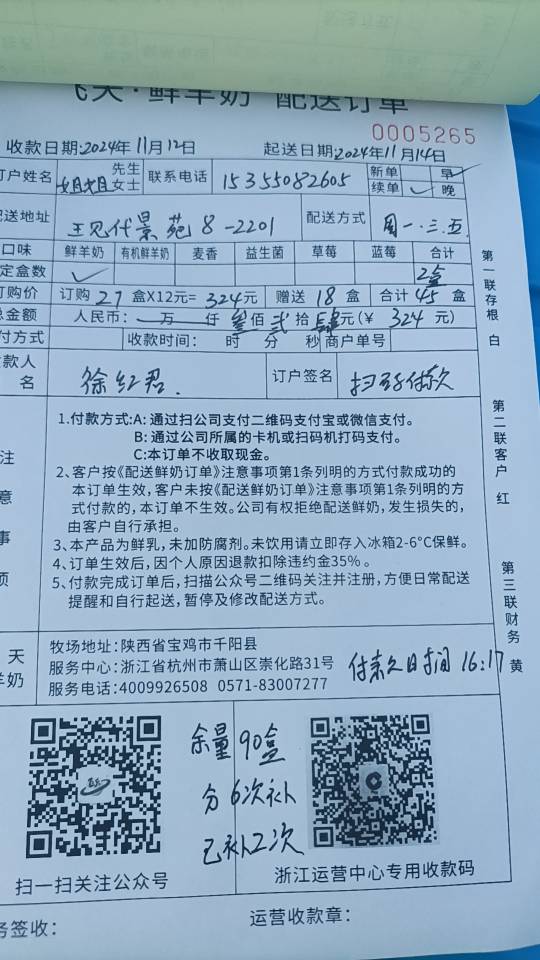 飞天·鲜羊奶 配送订单
0005265
收款日期:2024年11月12日 起送日期:2024年11月14日
订户姓名 姐姐 先生 女士 联系电话 15355082605 新单 早
续单 ✓ 晚
送地址 现代景苑8-2201 配送方式 周一.三.五
口味 鲜羊奶 有机鲜羊奶 麦香 益生菌 草莓 蓝莓 合计
定盒数 ✓ 2盒
订购价 订购27盒X12元=324元 赠送18盒 合计45盒
总金额 人民币: 万 仟 叁佰贰拾肆元(¥ 324 元)
付方式 收款时间: 时 分 秒 商户单号
款人 名 徐红君. 订户签名 扫码付款
注 意 事 项
1.付款方式:A: 通过扫公司支付二维码支付宝或微信支付。
B: 通过公司所属的卡机或扫码机打码支付。
C:本订单不收取现金。
2、客户按《配送鲜奶订单》注意事项第1条列明的方式付款成功的
本订单生效,客户未按《配送鲜奶订单》注意事项第1条列明的方
式付款的,本订单不生效。公司有权拒绝配送鲜奶,发生损失的,
由客户自行承担。
3、本产品为鲜乳,未加防腐剂。未饮用请立即存入冰箱2-6°C保鲜。
4、订单生效后,因个人原因退款扣除违约金35%。
5、付款完成订单后,扫描公众号二维码关注并注册,方便日常配送
提醒和自行起送,暂停及修改配送方式。
第一联存根 白
第二联客户 红
第三联财务 黄
天
羊奶
牧场地址:陕西省宝鸡市千阳县
服务中心:浙江省杭州市萧山区崇化路31号
服务电话:4009926508 0571-83007277
付款日时间 16:17
余量90盒
分6次补
已补2次
扫一扫关注公众号
浙江运营中心专用收款码
务签收:
运营收款章: